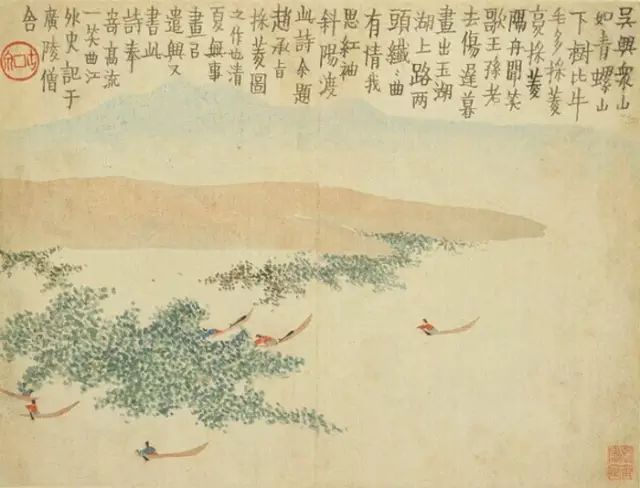 吳興眾山
如青螺山
下樹比牛
毛多採菱
复採菱
隔舟聞笑
歌王孫老
去傷遲暮
畫出玉湖
湖上路兩
頭纖〻曲
有情我
思紅袖
斜陽渡
此詩余題
趙承旨
採菱圖
之作也清
夏無事
畫㠯
遣興又
書此
詩奉
寄高流
一笑曲江
外史記于
廣陵僧
舍